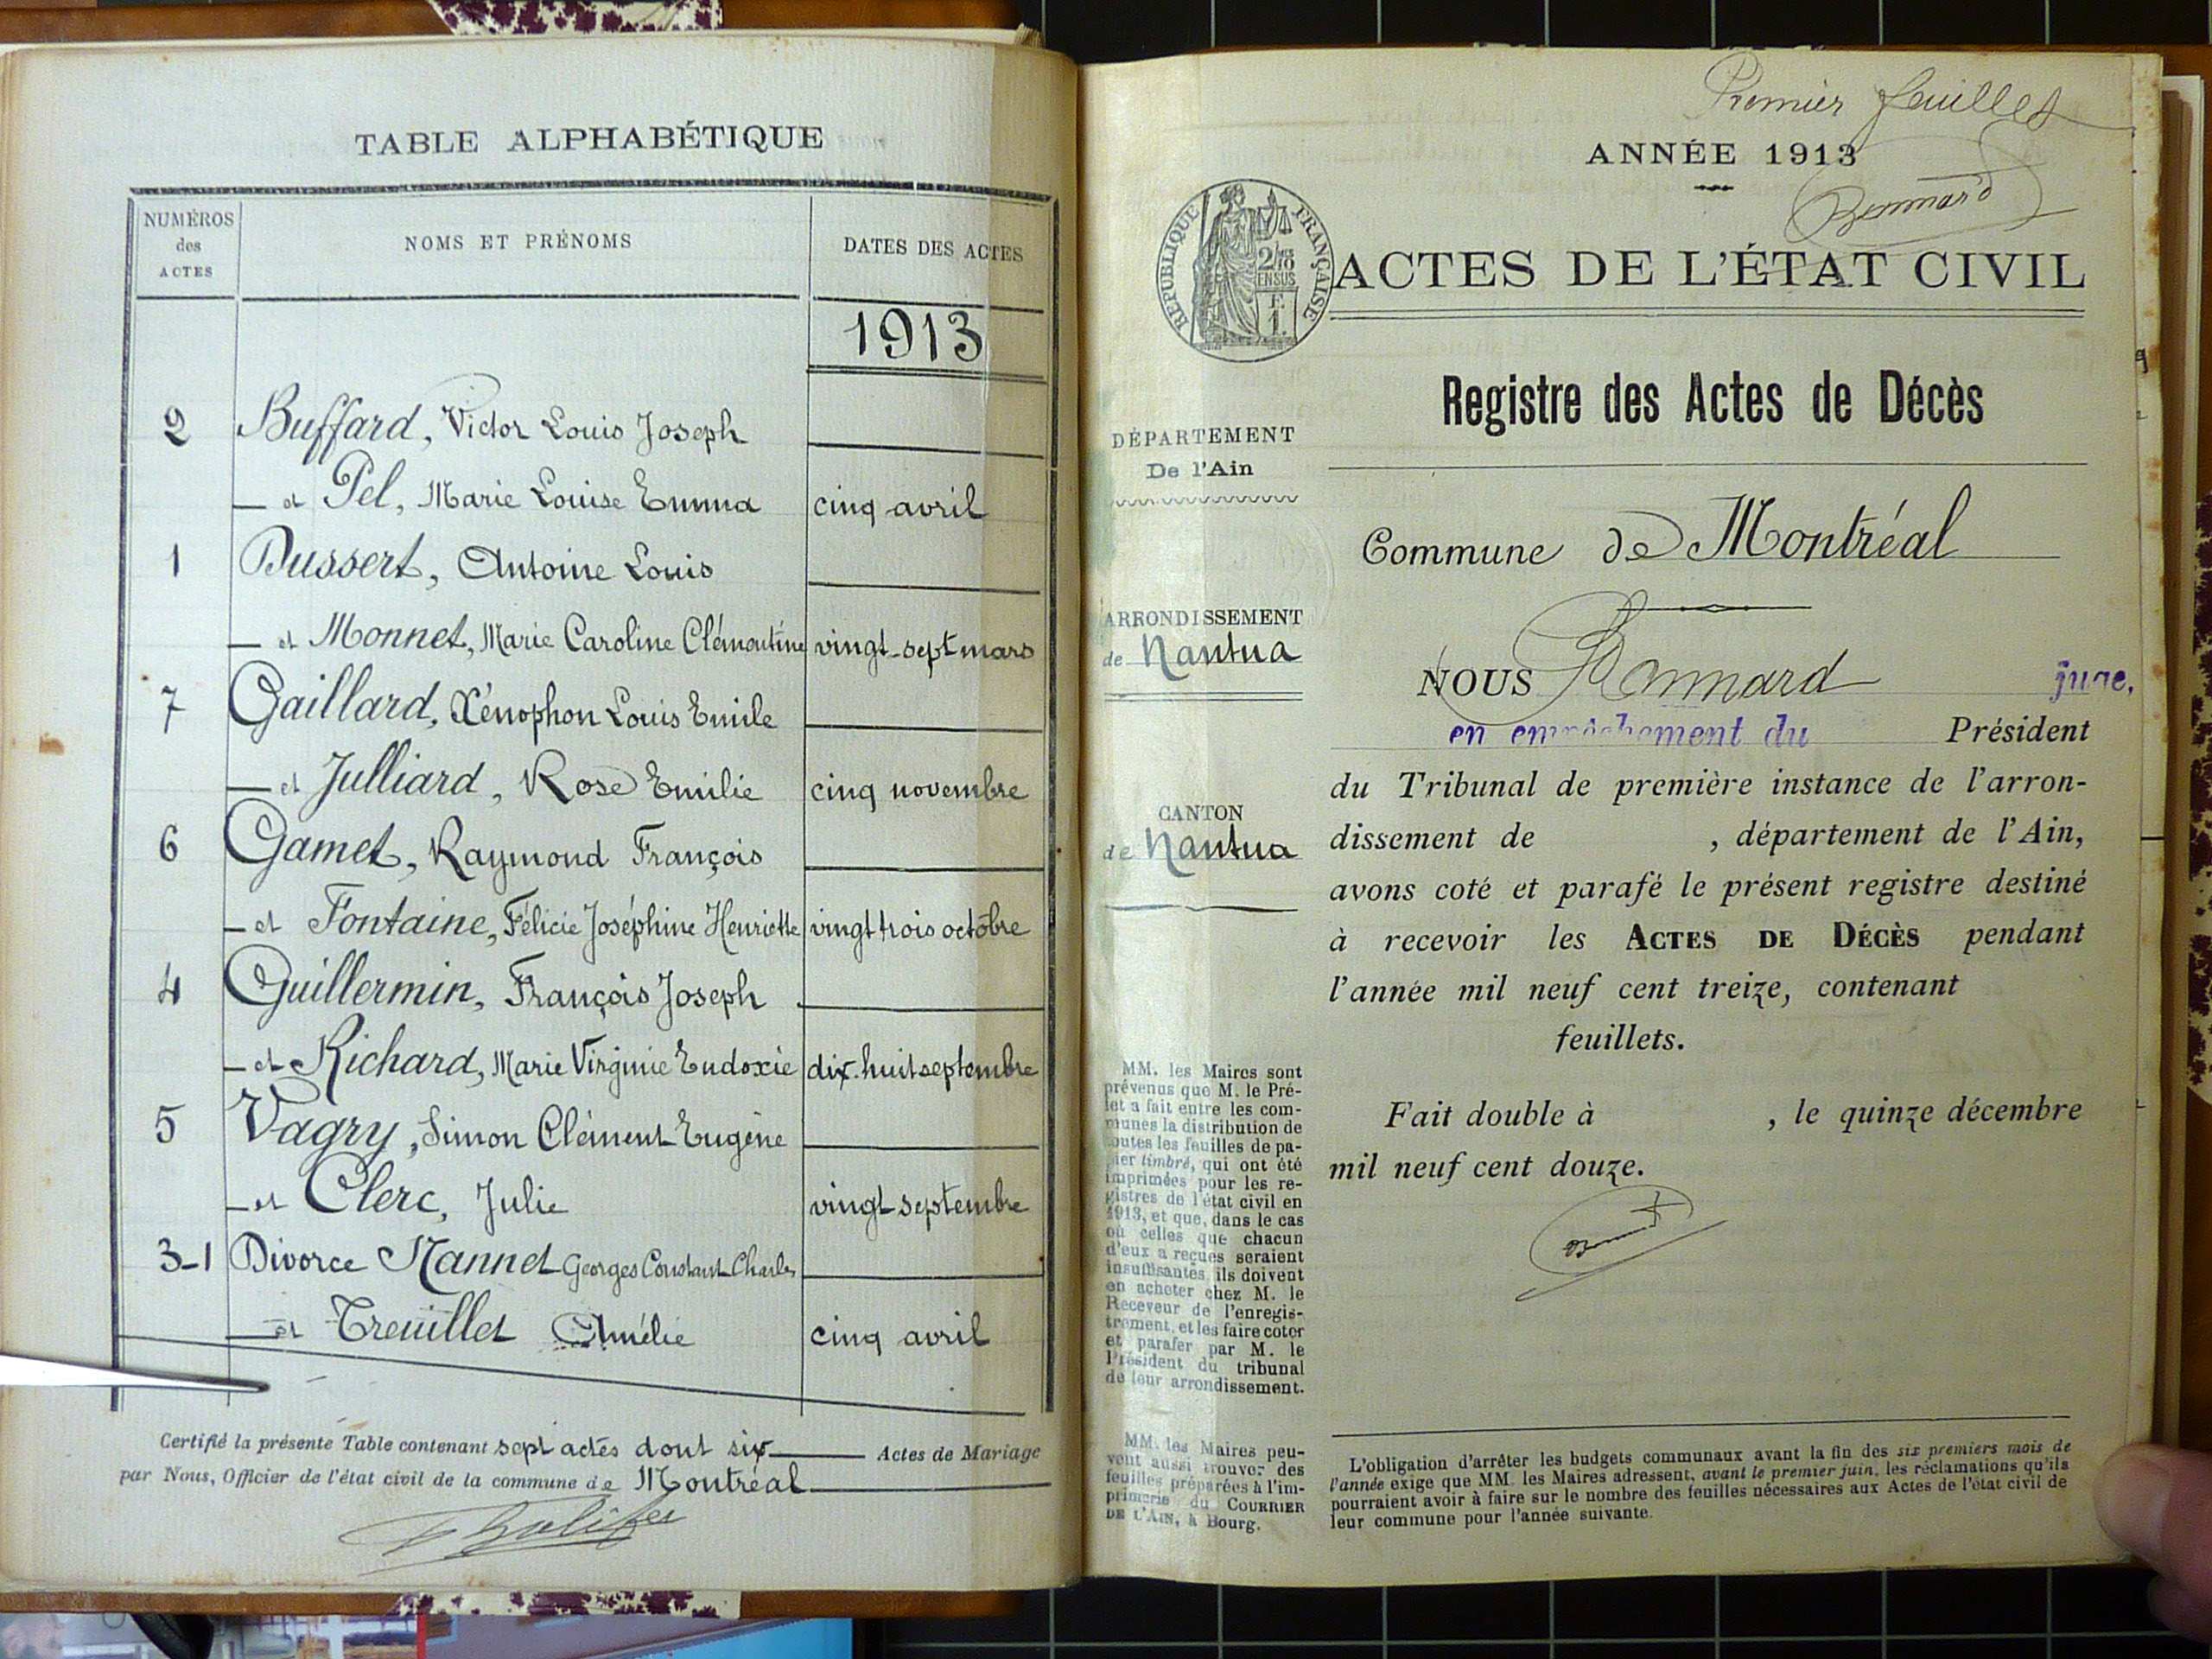 TABLE ALPHABÉTIQUE
NUMÉROS des ACTES
NOMS ET PRÉNOMS
DATES DES ACTES
1913
2 Buffard, Victor Louis Joseph
— et Pel, Marie Louise Emma cinq avril
1 Dussert, Antoine Louis
— et Monnet, Marie Caroline Clémentine vingt-sept mars
7 Gaillard, Xénophon Louis Emile
— et Julliard, Rose Emilie cinq novembre
6 Gamet, Raymond François
— et Fontaine, Félicie Joséphine Henriette vingt trois octobre
4 Guillermin, François Joseph
— et Richard, Marie Virginie Eudoxie dix-huit septembre
5 Vagry, Simon Clément Eugène
— et Clerc, Julie vingt septembre
3-1 Divorce Mannet Georges Constant Charles
— et Treuillet Amélie cinq avril
Certifié la présente Table contenant sept actes dont six — Actes de Mariage
par Nous, Officier de l'état civil de la commune de Montréal
Premier feuillet
ANNÉE 1913
Bonnard
RÉPUBLIQUE FRANÇAISE
2/10
EN SUS
F.
1.
ACTES DE L'ÉTAT CIVIL
Registre des Actes de Décès
DÉPARTEMENT
De l'Ain
Commune de Montréal
ARRONDISSEMENT
de Nantua
CANTON
de Nantua
NOUS Bonnard juge,
en empêchement du Président
du Tribunal de première instance de l'arron-
dissement de , département de l'Ain,
avons coté et parafé le présent registre destiné
à recevoir les ACTES DE DÉCÈS pendant
l'année mil neuf cent treize, contenant
feuillets.
Fait double à , le quinze décembre
mil neuf cent douze.
MM. les Maires sont
prévenus que M. le Pré-
fet a fait entre les com-
munes la distribution de
toutes les feuilles de pa-
pier timbré, qui ont été
imprimées pour les re-
gistres de l'état civil en
1913, et que, dans le cas
où celles que chacun
d'eux a reçues seraient
insuffisantes, ils doivent
en acheter chez M. le
Receveur de l'enregis-
trement, et les faire coter
et parafer par M. le
Président du tribunal
de leur arrondissement.
MM. les Maires peu-
vent aussi trouver des
feuilles préparées à l'im-
primerie du COURRIER
DE L'AIN, à Bourg.
L'obligation d'arrêter les budgets communaux avant la fin des six premiers mois de
l'année exige que MM. les Maires adressent, avant le premier juin, les réclamations qu'ils
pourraient avoir à faire sur le nombre des feuilles nécessaires aux Actes de l'état civil de
leur commune pour l'année suivante.